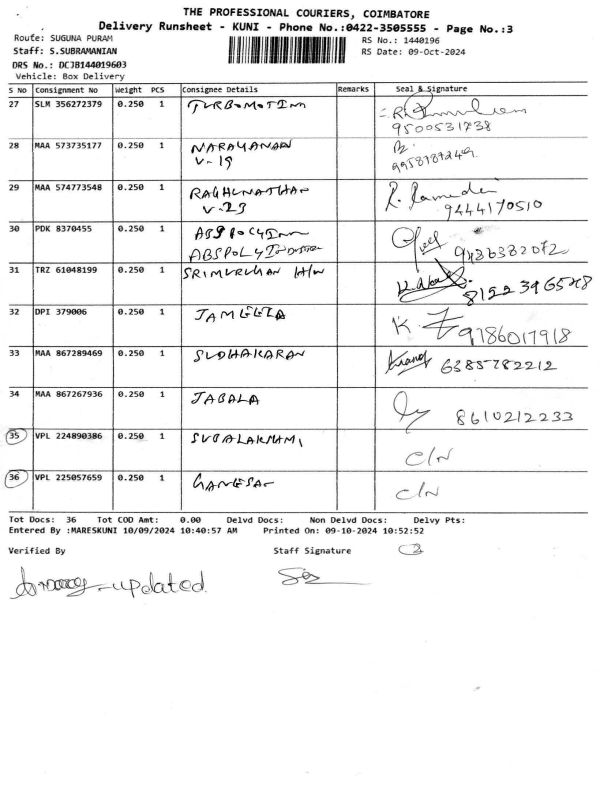 THE PROFESSIONAL COURIERS, COIMBATORE
Delivery Runsheet - KUNI - Phone No.:0422-3505555 - Page No.:3
Route: SUGUNA PURAM RS No.: 1440196
Staff: S.SUBRAMANIAN RS Date: 09-Oct-2024
DRS No.: DCJB144019603
Vehicle: Box Delivery
S No Consignment No Weight PCS Consignee Details Remarks Seal & Signature
27 SLM 356272379 0.250 1 TURBOMOTINN
9500531738
28 MAA 573735177 0.250 1 NARAYANAN
V-19
29 MAA 574773548 0.250 1 RAGHUNATHAN
V-23 9444170510
30 PDK 8370455 0.250 1
9486382072
31 TRZ 61048199 0.250 1 SRIMURUGAN H/W
32 DPI 379006 0.250 1 JAMEELA
9786017918
33 MAA 867289469 0.250 1 SUDHAKARAN 6385782212
34 MAA 867267936 0.250 1 JABALA
8610212233
35 VPL 224890386 0.250 1 SUBALAKSHMI
C/N
36 VPL 225057659 0.250 1 GANESAN
C/N
Tot Docs: 36 Tot COD Amt: 0.00 Delvd Docs: Non Delvd Docs: Delvy Pts:
Entered By :MARESKUNI 10/09/2024 10:40:57 AM Printed On: 09-10-2024 10:52:52
Verified By Staff Signature
updated